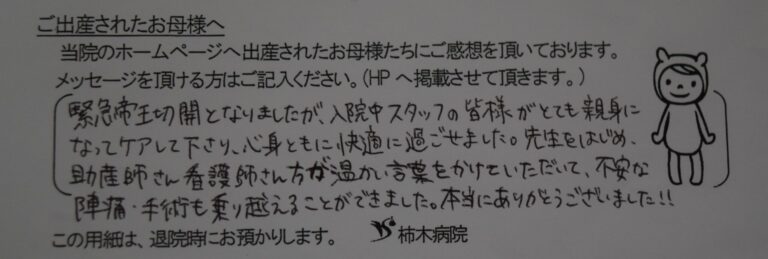 ご出産されたお母様へ
当院のホームページへ出産されたお母様たちにご感想を頂いております。
メッセージを頂ける方はご記入ください。(HPへ掲載させて頂きます。)
緊急帝王切開となりましたが、入院中スタッフの皆様がとても親身に
なってケアして下さり、心身ともに快適に過ごせました。先生をはじめ、
助産師さん看護師さん方が温かい言葉をかけていただいて、不安な
陣痛・手術も乗り越えることができました。本当にありがとうございました!!
この用紙は、退院時にお預かりします。 柿木病院